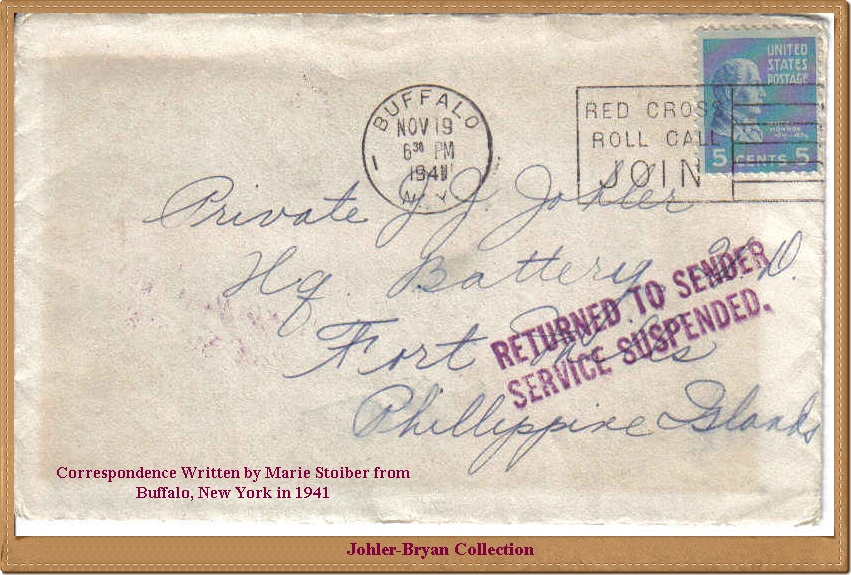 UNITED
STATES
POSTAGE
MONROE
5 CENTS 5
BUFFALO
NOV 19
6 30 PM
1941
N.Y.
1
RED CROSS
ROLL CALL
JOIN
Private J. J. Johler
Hq. Battery, D.
Fort Mills
Phillippine Islands
RETURNED TO SENDER
SERVICE SUSPENDED.
Correspondence Written by Marie Stoiber from
Buffalo, New York in 1941
Johler-Bryan Collection